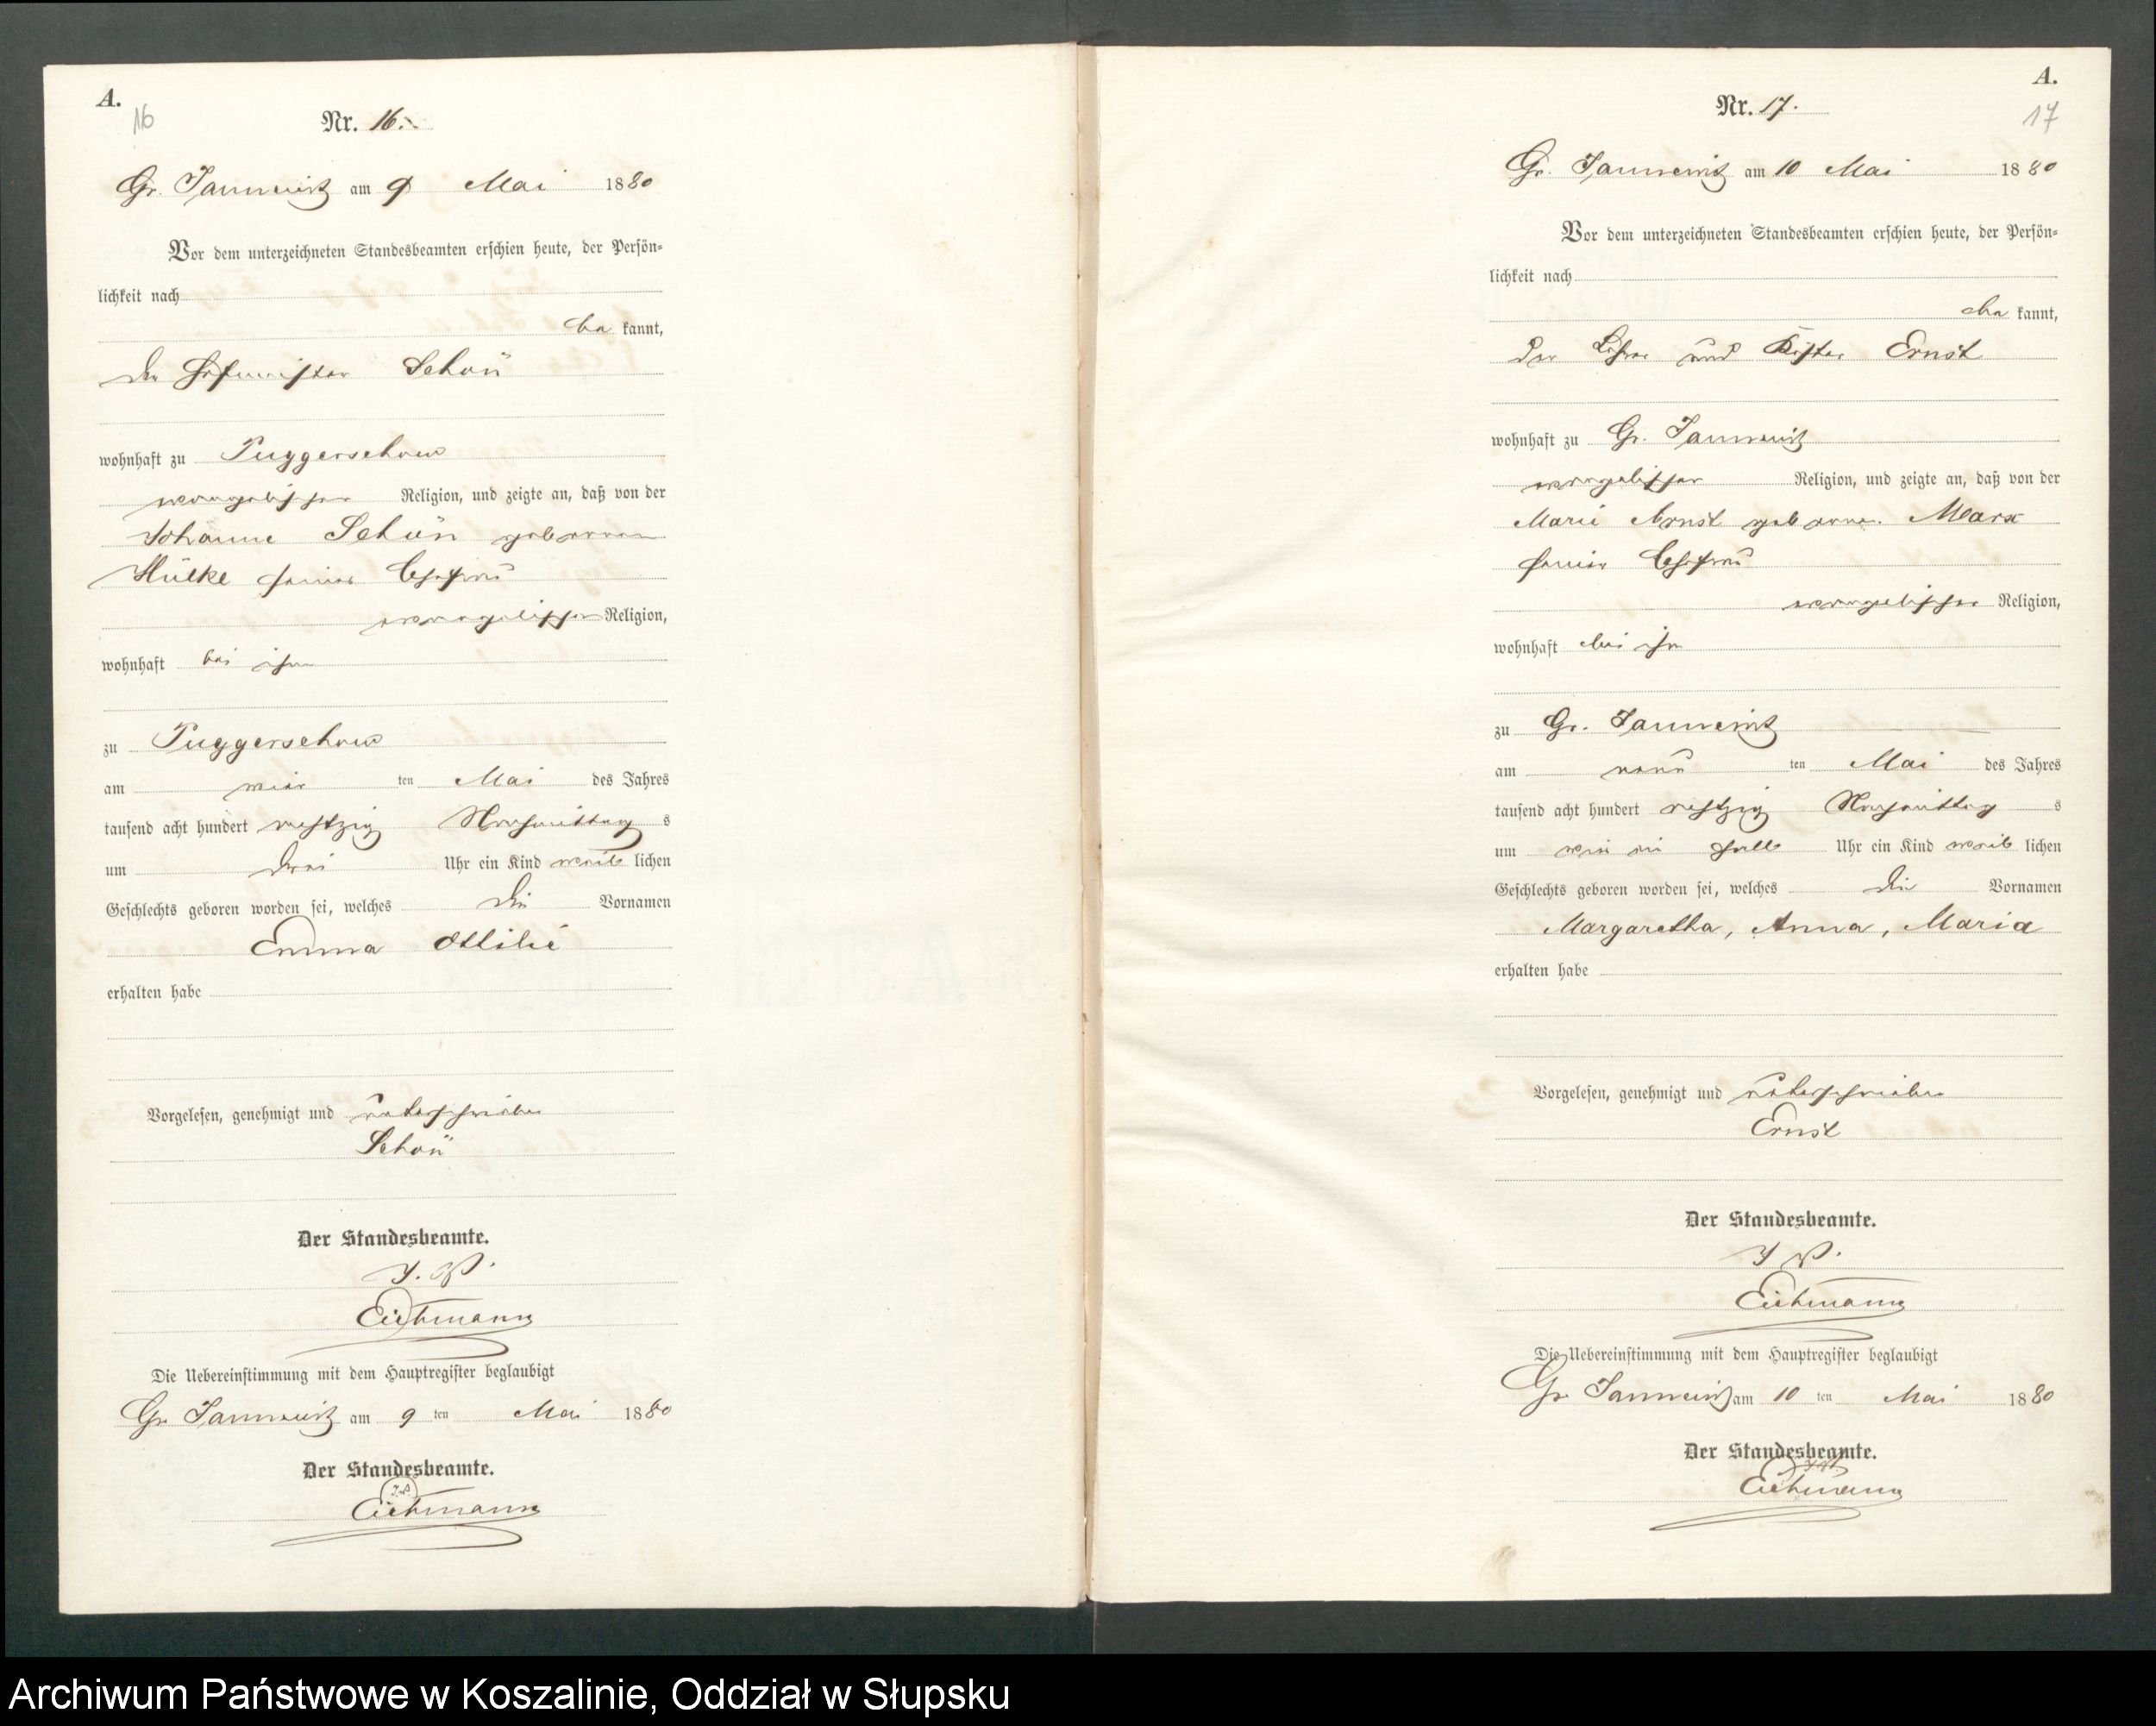 A.
16
Nr. 16.
Gr. Jannewitz am 9 Mai 1880
Vor dem unterzeichneten Standesbeamten erschien heute, der Persön-
lichkeit nach
be kannt,
der Hofmeister Schön
wohnhaft zu Puggerschow
evangelischer Religion, und zeigte an, daß von der
Johanne Schön geborenen
Hülke seiner Ehefrau
evangelischer Religion,
wohnhaft bei ihm
zu Puggerschow
am vier ten Mai des Jahres
tausend acht hundert achtzig Nachmittag s
um drei Uhr ein Kind weib lichen
Geschlechts geboren worden sei, welches die Vornamen
Emma Ottilie
erhalten habe
Vorgelesen, genehmigt und unterschrieben
Schön
Der Standesbeamte.
J. V.
Eichmann
Die Uebereinstimmung mit dem Hauptregister beglaubigt
Gr. Jannewitz am 9 ten Mai 1880
Der Standesbeamte.
J. V.
Eichmann
A.
17
Nr. 17.
Gr. Jannewitz am 10 Mai 1880
Vor dem unterzeichneten Standesbeamten erschien heute, der Persön-
lichkeit nach
be kannt,
der Lehrer und Küster Ernst
wohnhaft zu Gr. Jannewitz
evangelischer Religion, und zeigte an, daß von der
Marie Ernst geborene. Marx
seiner Ehefrau
evangelischer Religion,
wohnhaft bei ihm
zu Gr. Jannewitz
am neun ten Mai des Jahres
tausend acht hundert achtzig Nachmittag s
um ein halb Uhr ein Kind weib lichen
Geschlechts geboren worden sei, welches die Vornamen
Margaretha, Anna, Maria
erhalten habe
Vorgelesen, genehmigt und unterschrieben
Ernst
Der Standesbeamte.
J V.
Eichmann
Die Uebereinstimmung mit dem Hauptregister beglaubigt
Gr. Jannewitz am 10 ten Mai 1880
Der Standesbeamte.
J. V.
Eichmann
Archiwum Państwowe w Koszalinie, Oddział w Słupsku